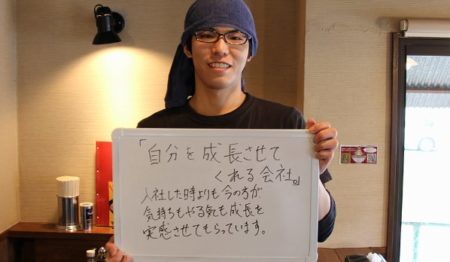 「自分を成長させて
くれる会社。」
入社した時よりも今の方が
気持ちもやる気も成長を
実感させてもらっています。